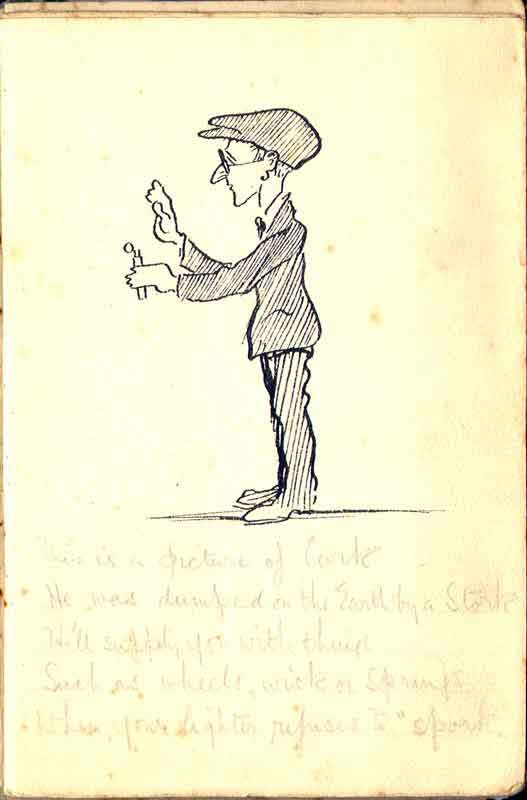 This is a picture of Cork
He was dumped on the Earth by a Stork
He'll supply you with things
Such as wheels, wick or springs
When your lighter refuses to "spark".